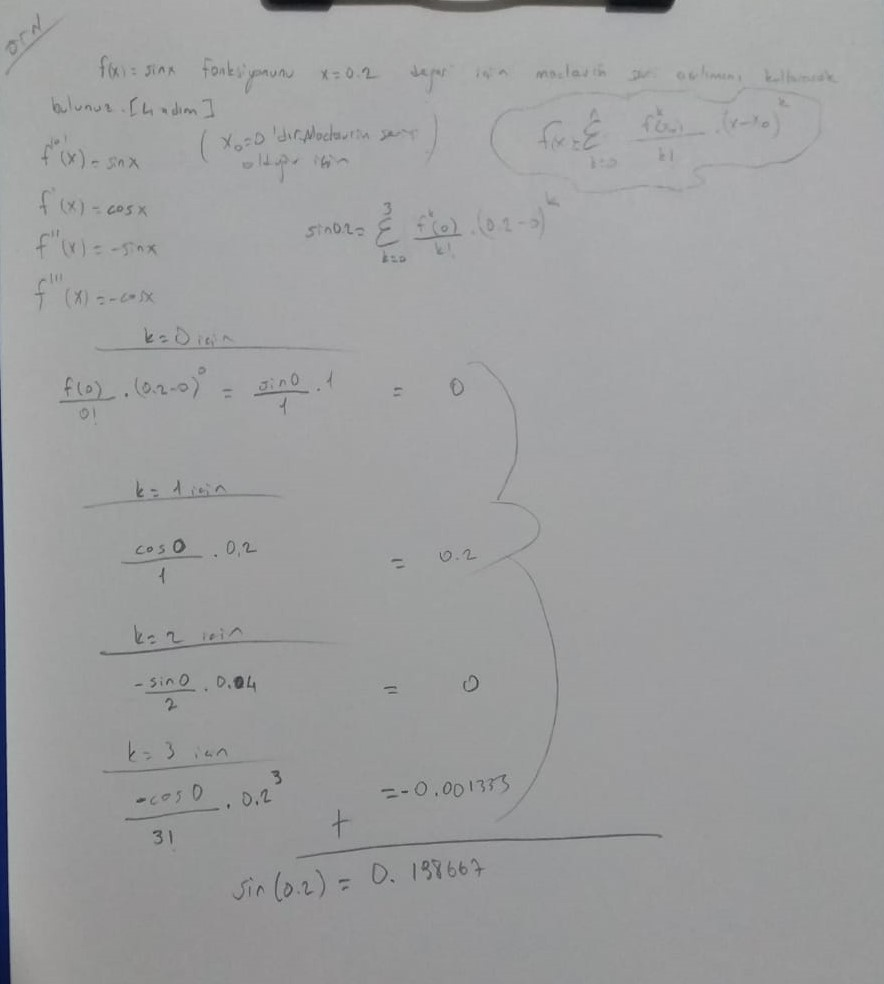 ÖRN
f(x) = sinx fonksiyonunu x=0.2 değeri için maclaurin seri açılımını kullanarak
bulunuz. [4 adım]
(x₀=0'dır. Maclaurin serisi
olduğu için)
f(x) = Σ_{k=0}^{n} f^k(x₀)/k! . (x-x₀)^k
f⁽⁰⁾(x) = sinx
f'(x) = cosx
f''(x) = -sinx
f'''(x) = -cosx
sin0.2 = Σ_{k=0}^{3} f^k(0)/k! . (0.2-0)^k
k=0 için
f(0)/0! . (0.2-0)⁰ = sin0/1 . 1 = 0
k=1 için
cos0/1 . 0,2 = 0.2
k=2 için
-sin0/2 . 0.04 = 0
k=3 için
-cos0/3! . 0.2³ = -0.001333
+
sin(0.2) = 0.198667